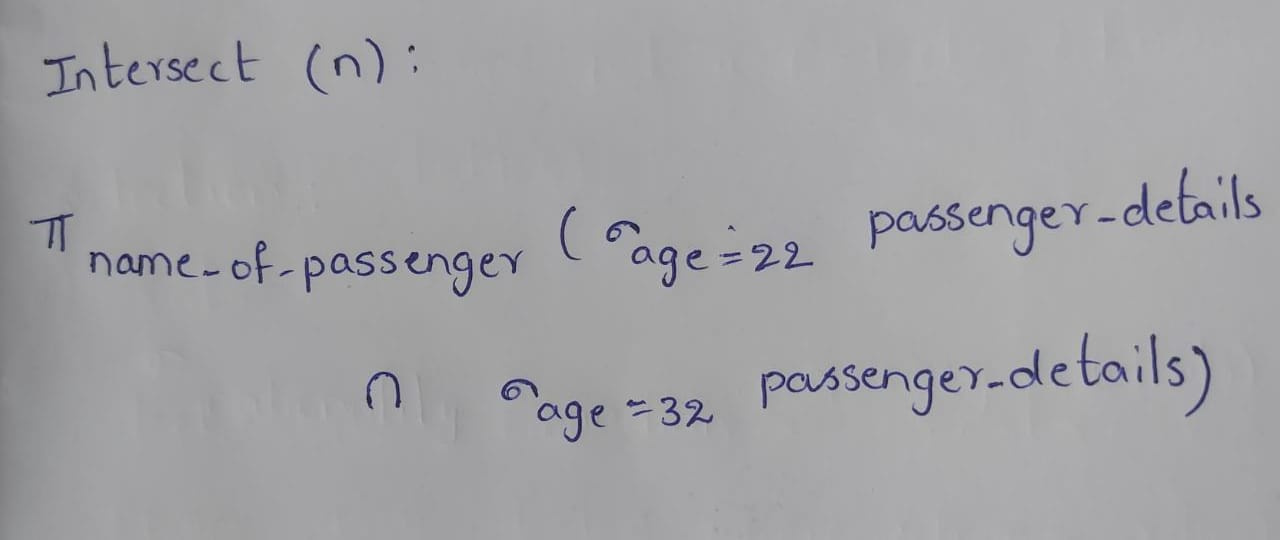 Intersect (∩):
π name-of-passenger (σ age=22 passenger-details
∩ σ age=32 passenger-details)